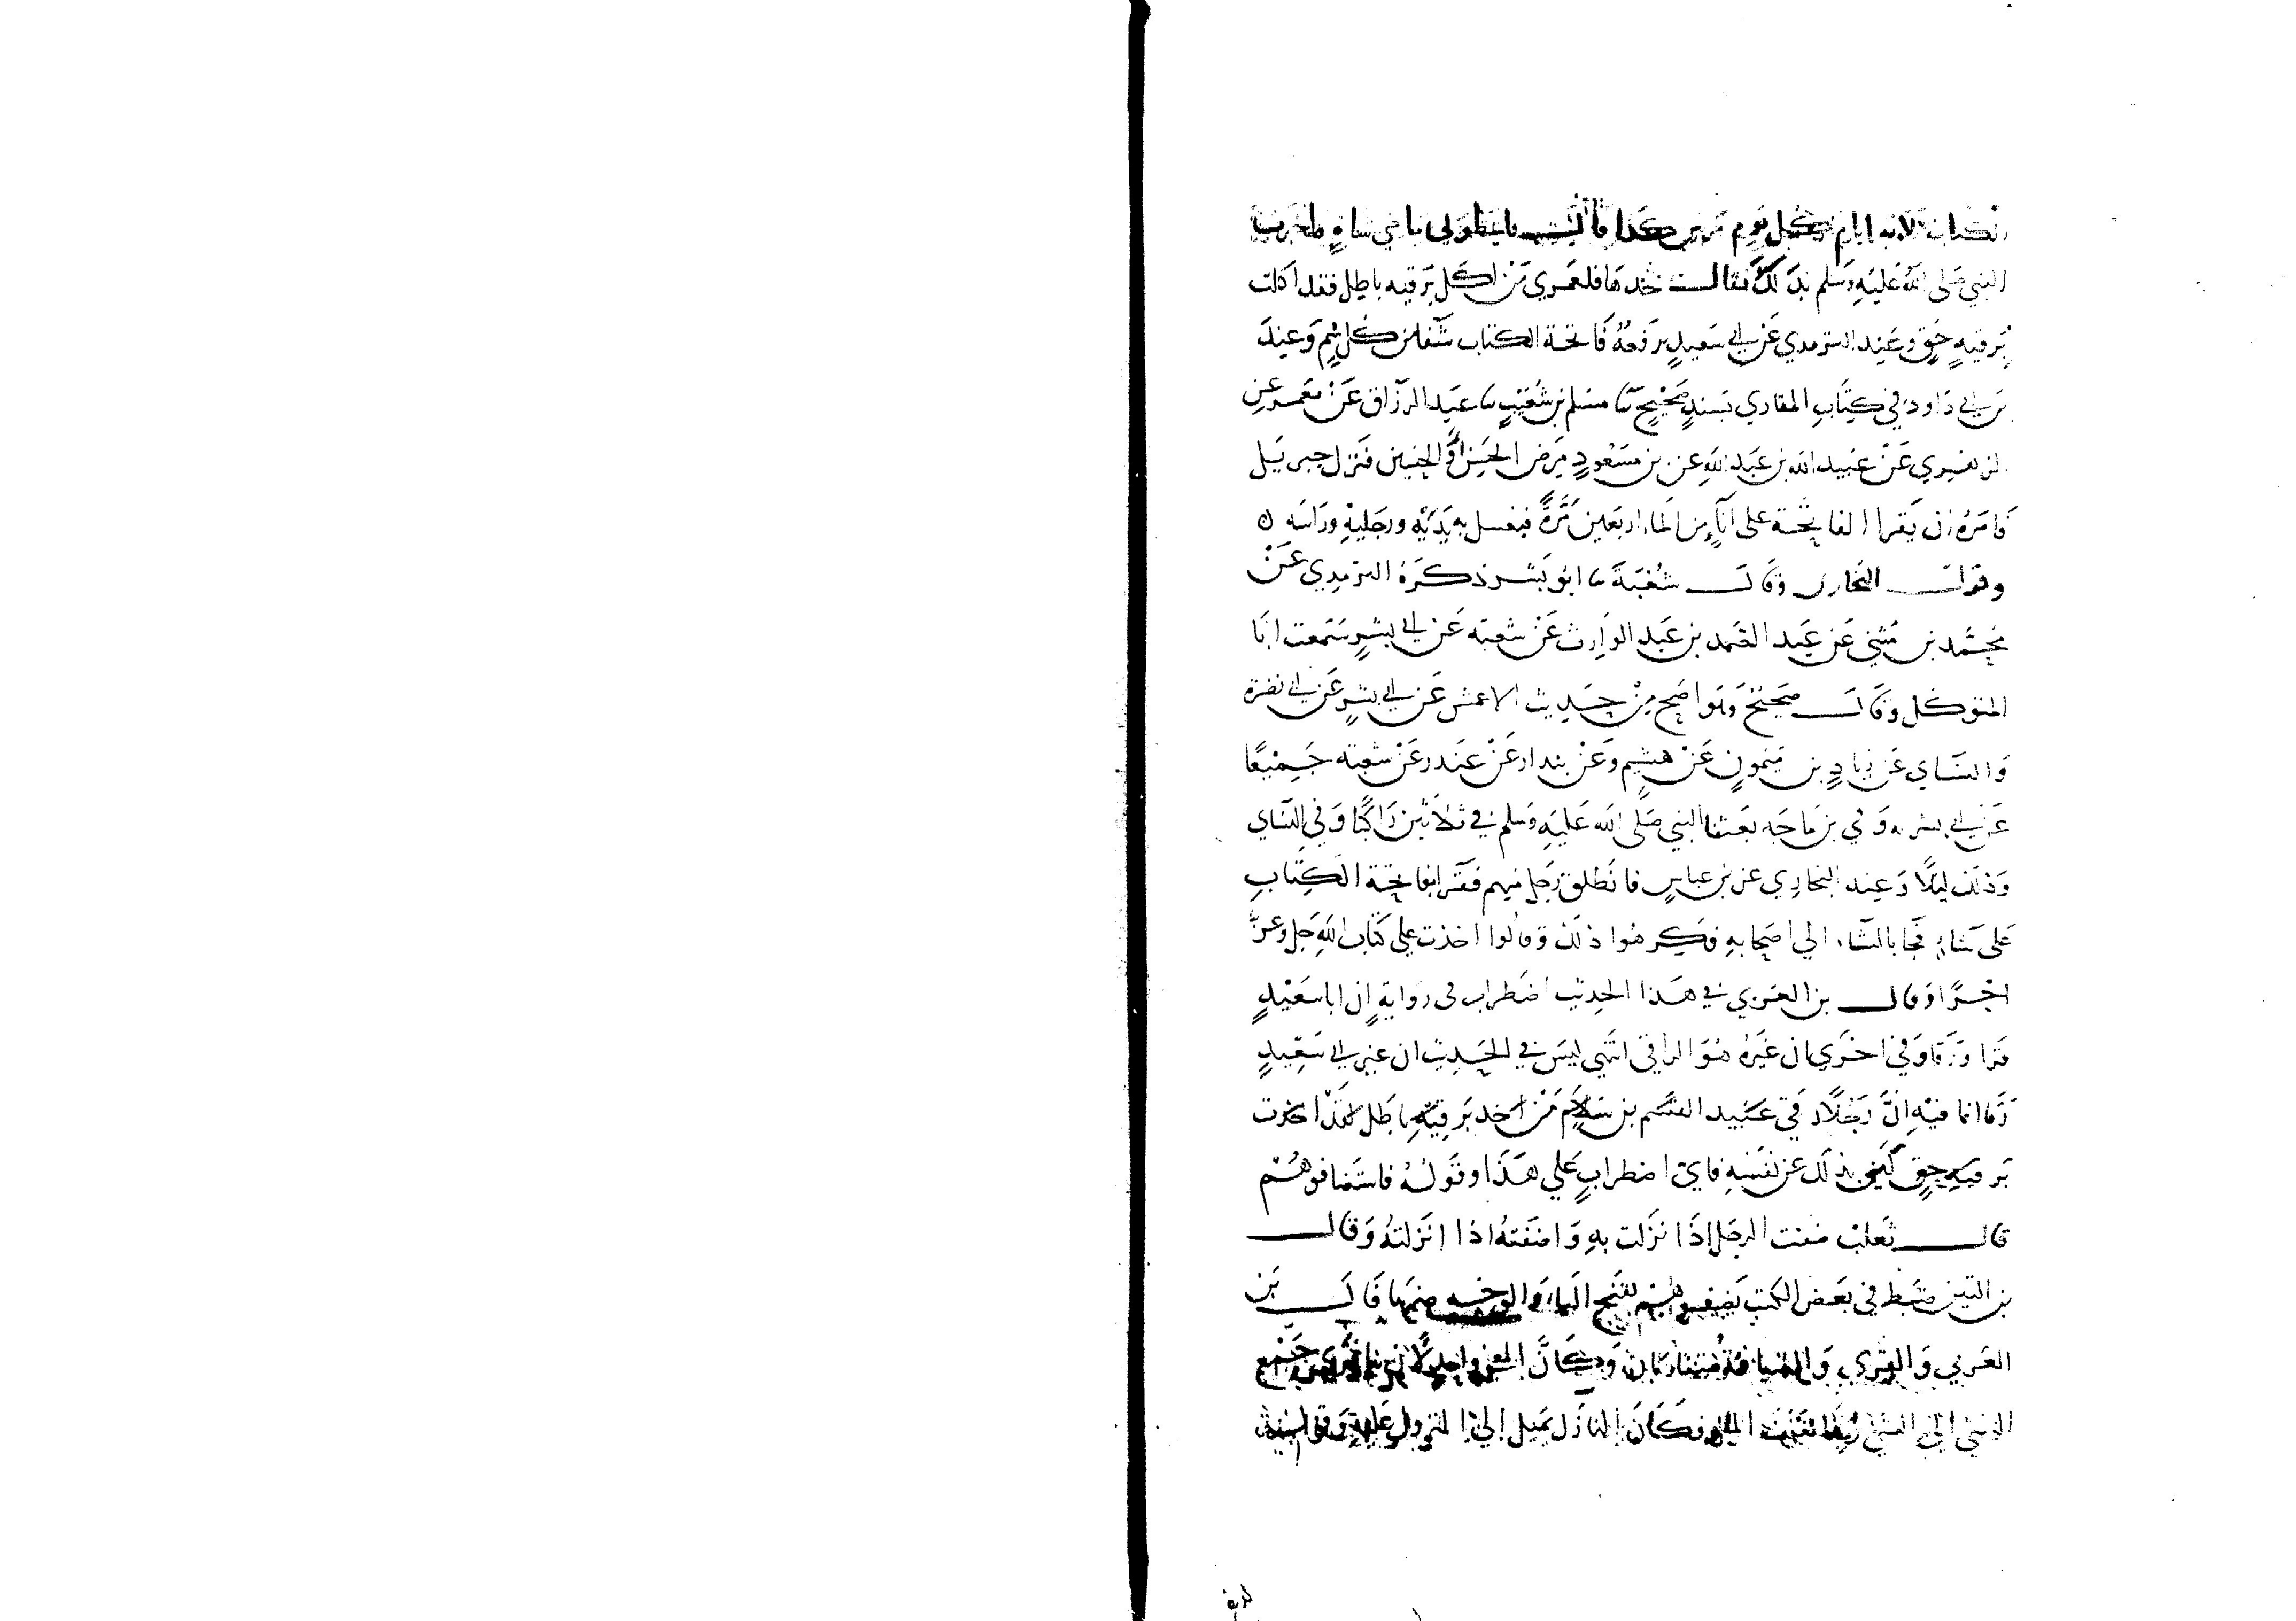 الكتاب ثلاثة ايام كل يوم مرتين كذا قالت فاعطوني مايتي شاة فاخبرت
النبي صلى الله عليه وسلم بذلك فقال خدها فلعمري من اكل برقيه باطل فقد اكلت
برقيه حق وعند الترمدي عن ابي سعيد يرفعه فاتحة الكتاب شفا من كل سم وعند
بن ابي داود في كتاب المقاري بسند صحيح ثنا مسلم بن شعيب ثنا عبد الرزاق عن معمر عن
الزهري عن عبيد الله بن عبد الله عن بن مسعود مرض الحسن او الحسين فنزل جبريل
فامره ان يقرا الفاتحة على اناء من الماء اربعين مرة فيغسل به يديه ورجليه وراسه ه
وقول البخاري وقال شعبة ثنا ابو بشر ذكره الترمدي عن
محمد بن مثنى عن عبد الصمد بن عبد الوارث عن شعبه عن ابي بشر سمعت ابا
المتوكل وقال صحيح وهو اصح من حديث الاعمش عن ابي بشر عن ابي نضرة
والنساي عن زياد بن ميمون عن هشيم وعن بندار عن غندر عن شعبه جميعا
عن ابي بشر به وفي بن ماجه بعثنا النبي صلى الله عليه وسلم في ثلاثين راكبا وفي النساي
وذلك ليلا وعند البخاري عن بن عباس فانطلق رجل منهم فقرا بفاتحة الكتاب
على شاء فجا بالشاء الي اصحابه فكرهوا ذلك وقالوا اخذت علي كتاب الله جل وعز
اجرا وقال بن العربي في هذا الحديث اضطراب في رواية ان ابا سعيد
قرا ورقا وفي اخرى ان غيره هو الراقي انتهى ليس في الحديث ان غير ابي سعيد
رقا انما فيه ان رجلا رقي عبيد القسم بن سلام من اخد برقية باطل لقد اخدت
برقيه حق كنى بذلك عن نفسه فاي اضطراب علي هذا وقوله فاستضافوهم
قال ثعلب ضفت الرجل اذا نزلت به واضفته اذا انزلته وقال
بن التين ضبط في بعض الكتب يضيفوهم بفتح الياء والوجه ضمها قال بن
العربي والقري والضيافة وكان
الشي الي الشي فكان النازل يميل إلى المنزول عليه وقوله
لدغ